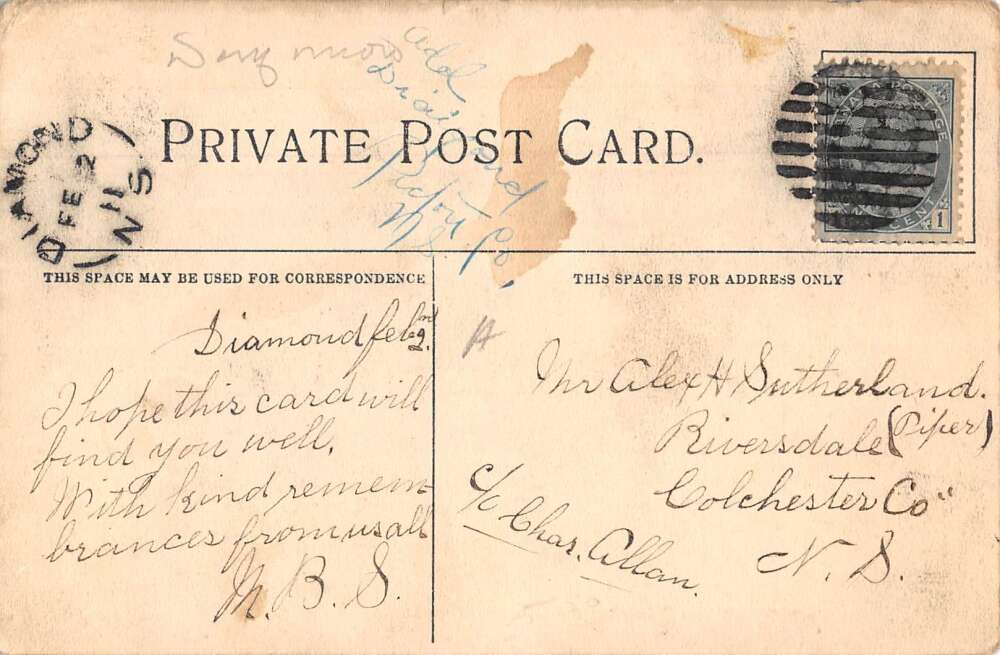 DIAMOND
FE 2
11
N S
PRIVATE POST CARD.
POSTAGE
CENT
1
THIS SPACE MAY BE USED FOR CORRESPONDENCE
Diamond feb 2nd
I hope this card will
find you well.
With kind remem-
brances from us all
M. B. S.
THIS SPACE IS FOR ADDRESS ONLY
Mr Alex H Sutherland.
Riversdale (Piper)
Colchester Co"
N. S.
c/o Chas. Allan.